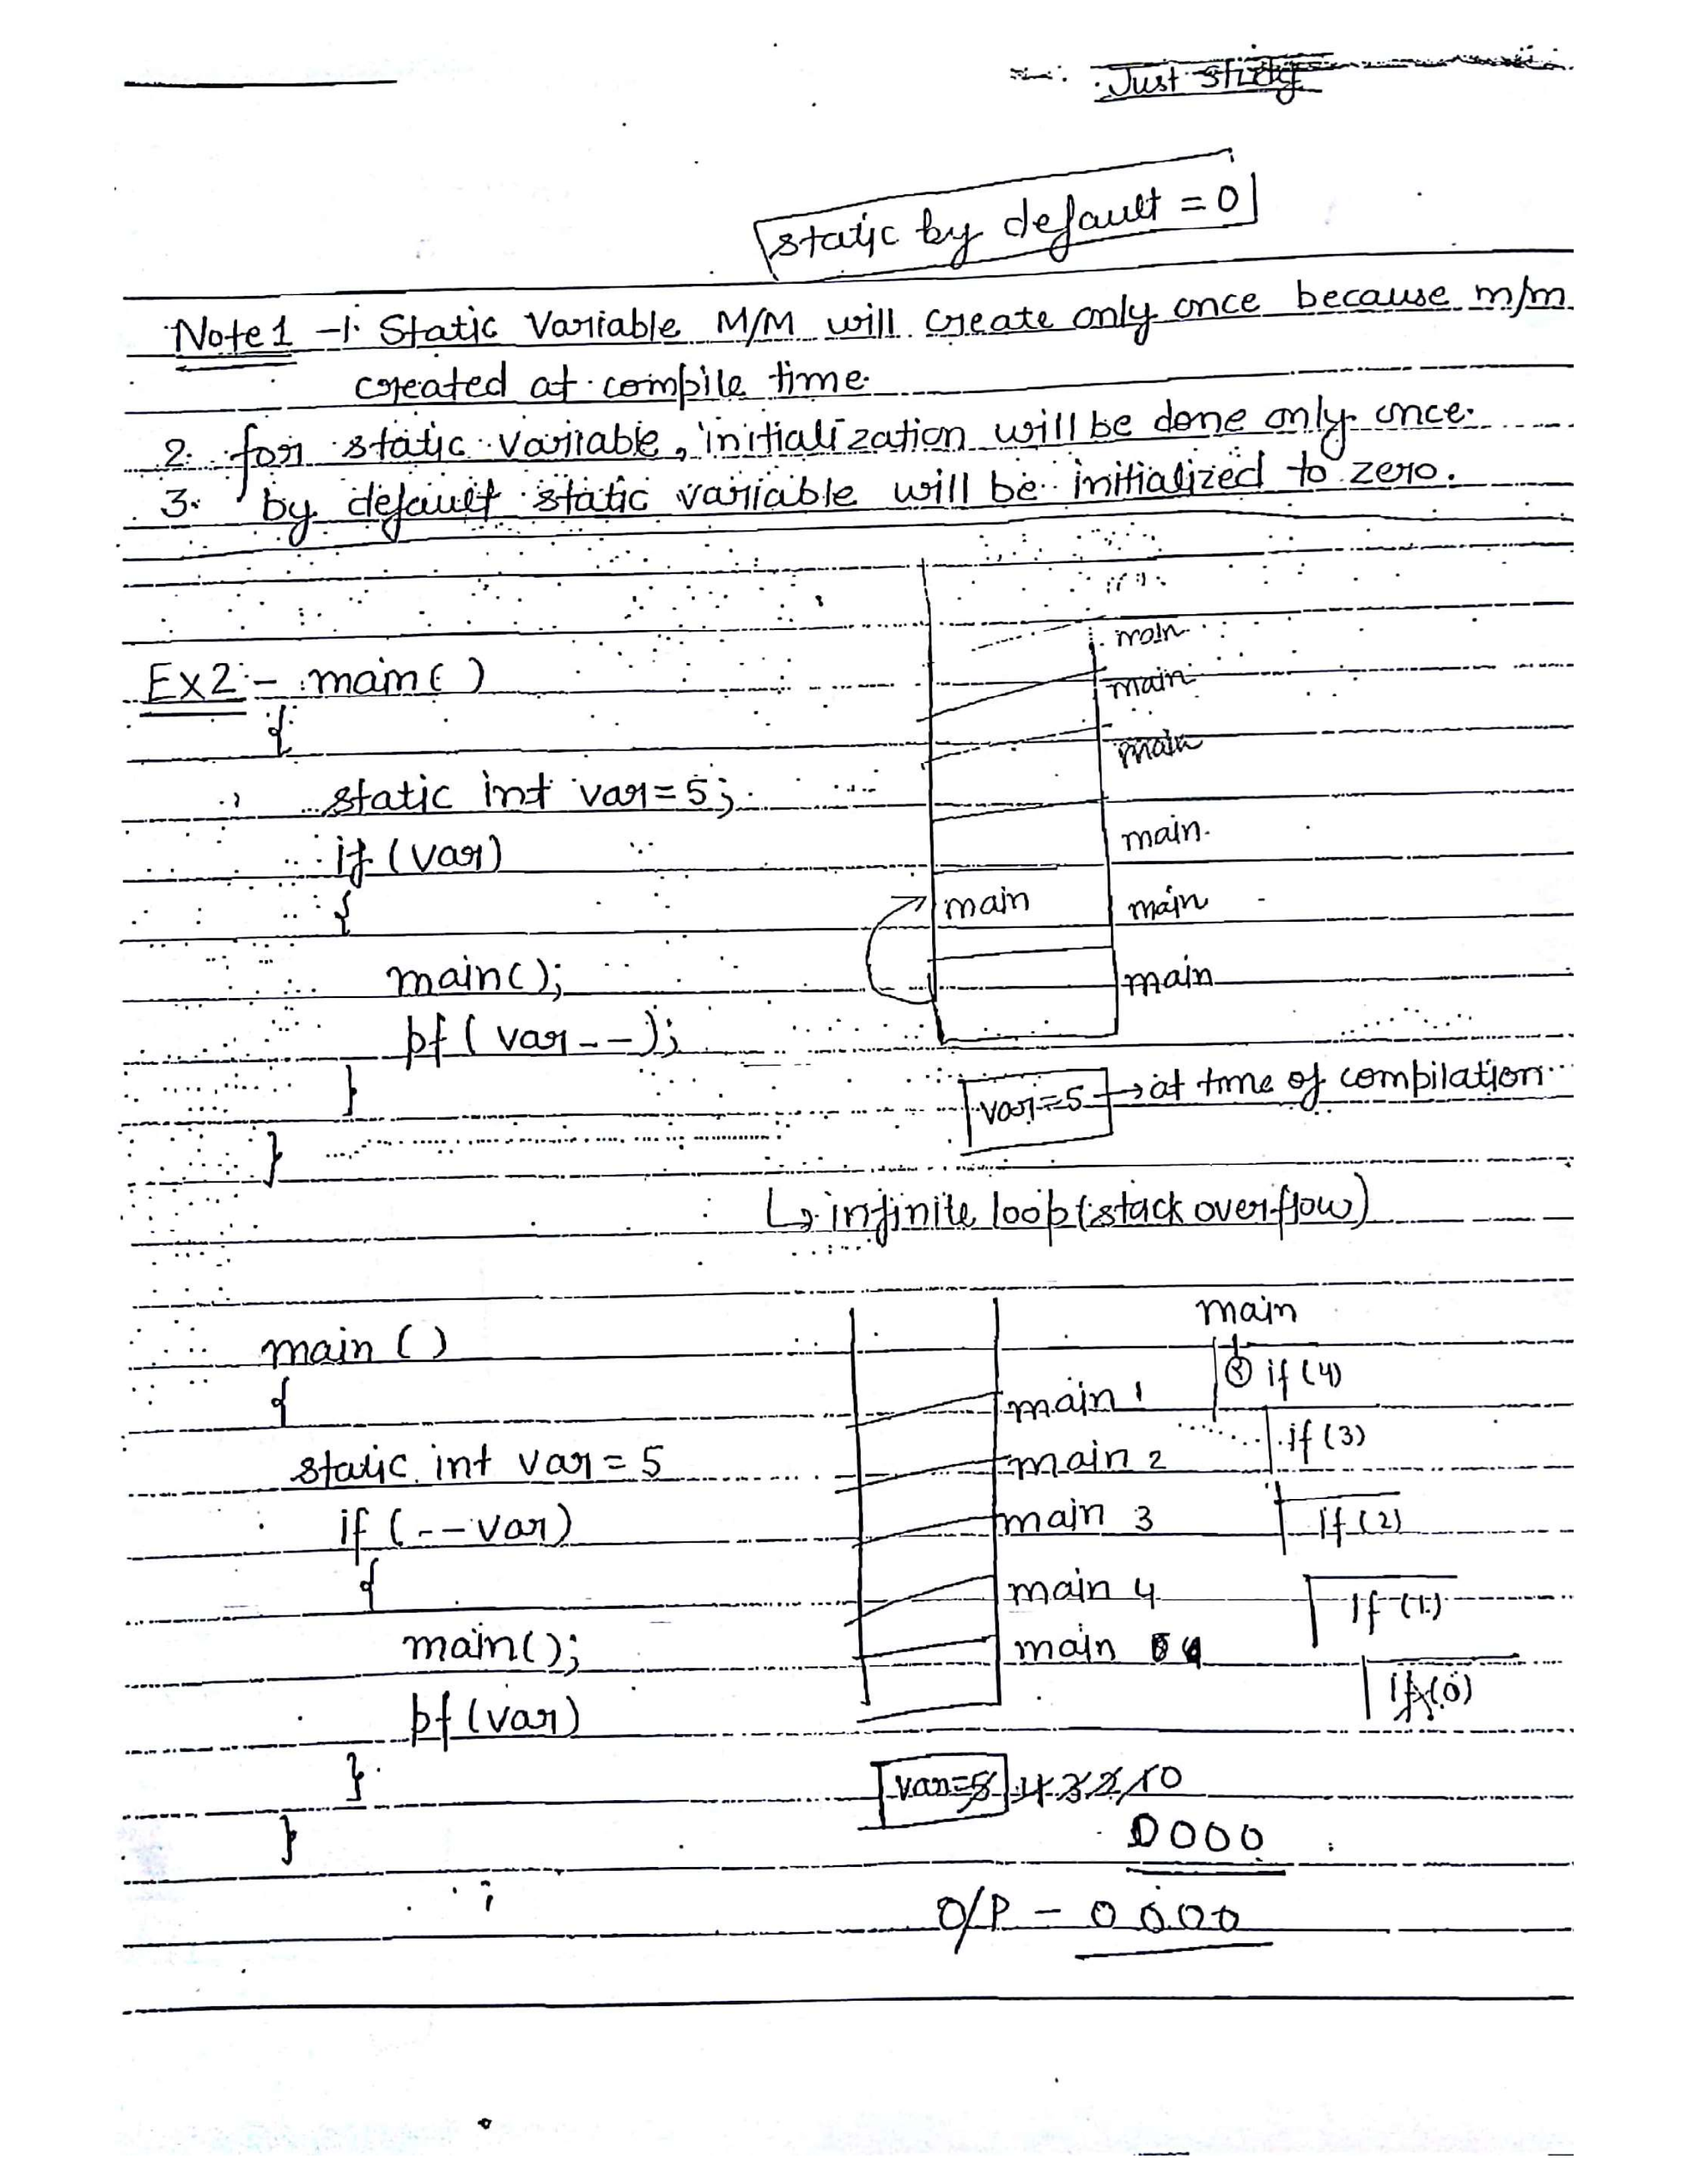 Just Study
static by default = 0
Note 1 - 1. Static Variable M/M will create only once because m/m
created at compile time.
2. for static variable, initialization will be done only once.
3. by default static variable will be initialized to zero.
main
main
main
Ex2 - main()
{
static int var=5;
if (var)
main
{
main
main
main();
main
pf( var--);
}
var=5 → at time of compilation
}
↳ infinite loop (stack overflow)
main
main ()
if (4)
{
main 1
if (3)
static int var = 5
main 2
if (--var)
main 3
if (2)
{
main 4
if (1)
main();
main
if (0)
pf(var)
}
var=5 4 3 2 1 0
}
0000
O/P - 0000